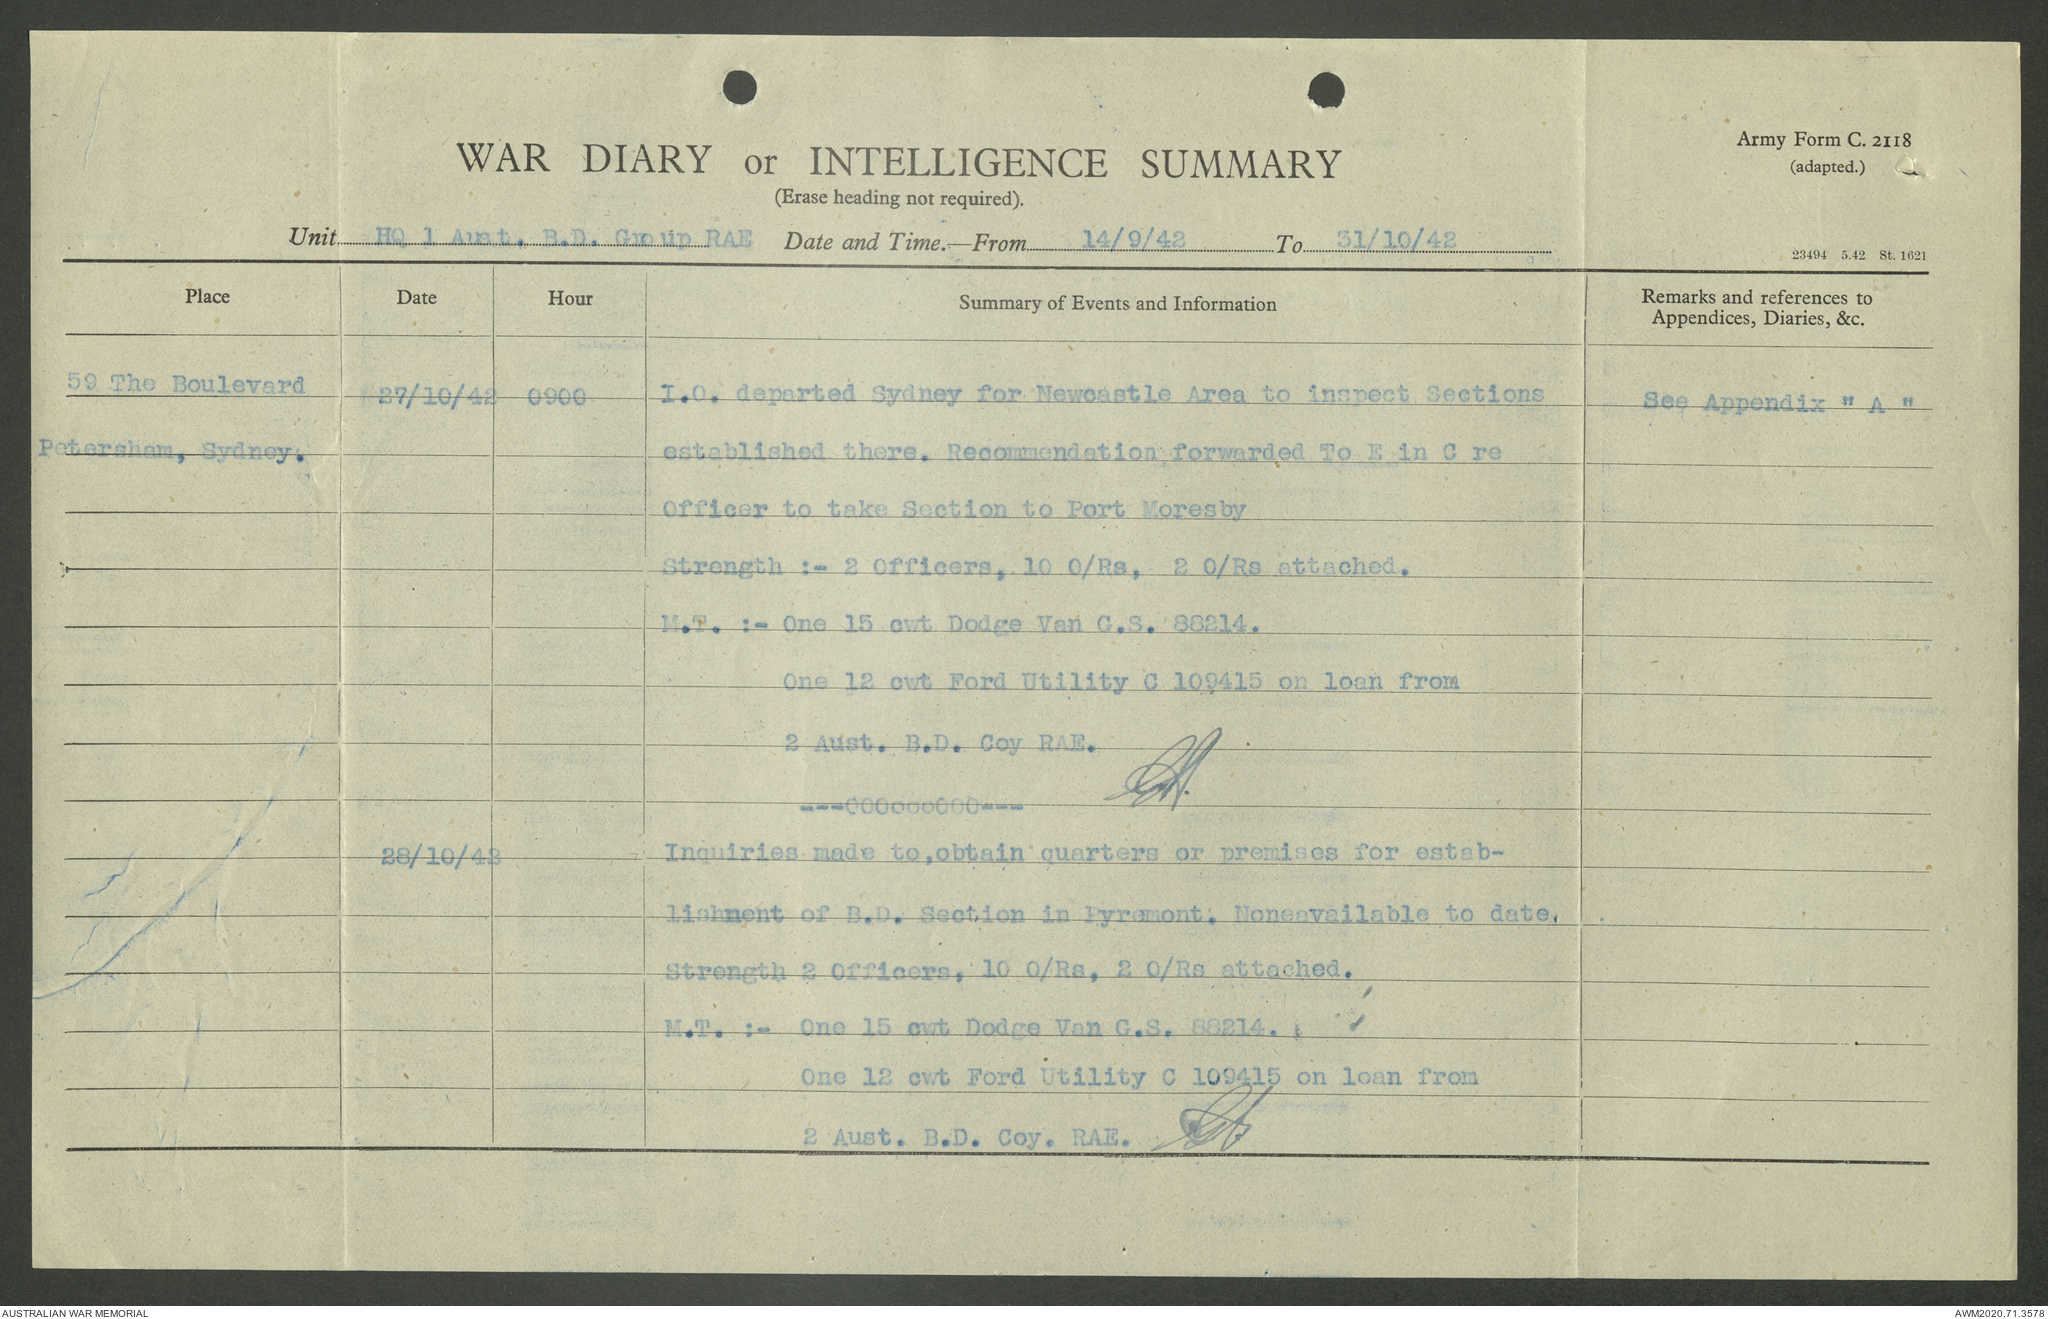 Army Form C. 2118
(adapted.)
WAR DIARY or INTELLIGENCE SUMMARY
(Erase heading not required).
Unit HQ 1 Aust. B.D. Group RAE Date and Time.—From 14/9/42 To 31/10/42
23494 5.42 St. 1621
Place Date Hour Summary of Events and Information Remarks and references to
Appendices, Diaries, &c.
59 The Boulevard 27/10/42 0900 I.O. departed Sydney for Newcastle Area to inspect Sections See Appendix " A "
Petersham, Sydney. established there. Recommendation forwarded To E in C re
Officer to take Section to Port Moresby
Strength :- 2 Officers, 10 O/Rs, 2 O/Rs attached.
M.T. :- One 15 cwt Dodge Van G.S. 88214.
One 12 cwt Ford Utility C 109415 on loan from
2 Aust. B.D. Coy RAE.
---OOOoooOOO---
28/10/42 Inquiries made to,obtain quarters or premises for estab-
lishment of B.D. Section in Pyremont. Noneavailable to date.
Strength 2 Officers, 10 O/Rs, 2 O/Rs attached.
M.T. :- One 15 cwt Dodge Van G.S. 88214.
One 12 cwt Ford Utility C 109415 on loan from
2 Aust. B.D. Coy. RAE.
AUSTRALIAN WAR MEMORIAL AWM2020.71.3578